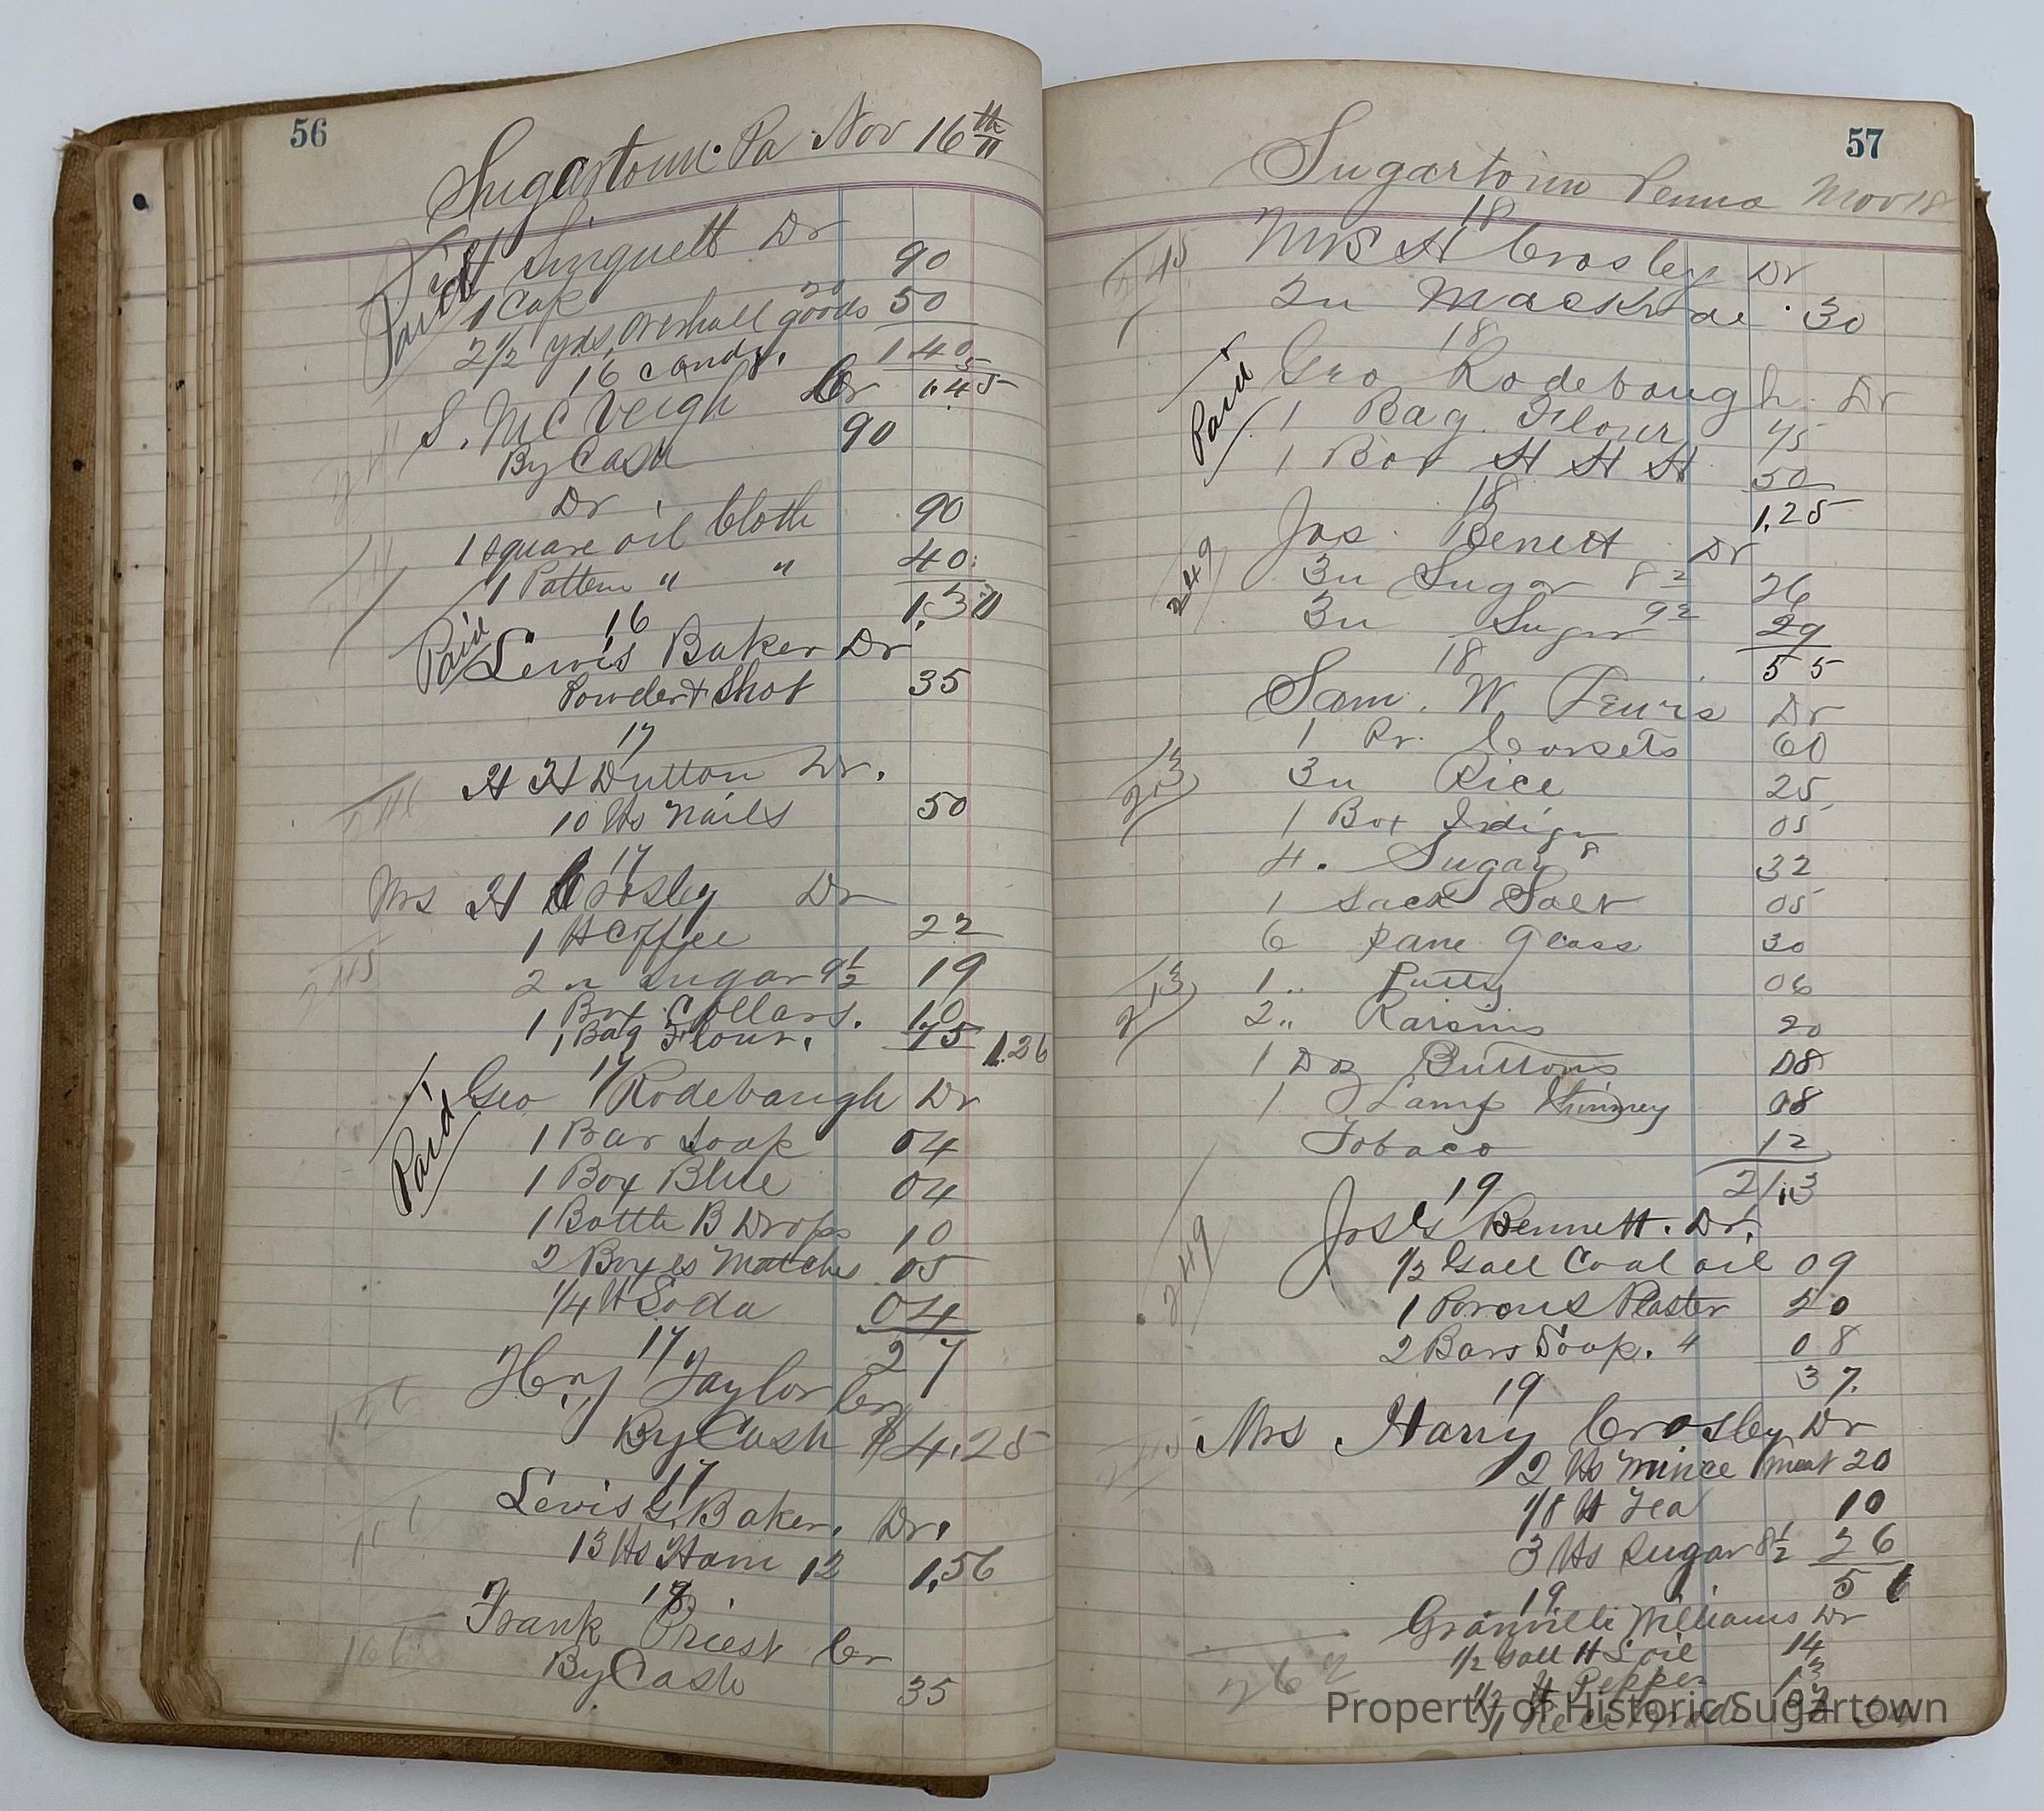 56
Sugartown Pa Nov 16th
Paid Singuett Dr
1 Cap 90
2 1/2 yds overhall goods 20 50
1 40
16 candy. 5
1.45
S. McVeigh Cr
By Cash 90
Dr
1 square oil Cloth 90
1 Pattern " " 40
1.30
16
Paid Lewis Baker Dr
Powder + Shot 35
17
H H Dutton Dr.
10 lbs Nails 50
17
Mrs H Crosley Dr
1 lb Coffee 22
245
2 " Sugar 9 1/2 19
1 Box Collars. 10
1 Bag Flour. 75 1.26
17
Paid Geo Rodebaugh Dr
1 Bar Soap 04
1 Box Blue 04
1 Bottle B Drops 10
2 Boxes Matches 05
1/4 lb Soda 04
27
17
Hry Taylor Cr
By Cash $4.25
17
Lewis G. Baker. Dr.
13 lbs Ham 12 1.56
18.
Frank Priest Cr
166
By Cash 35
57
Sugartown Penna Nov 18
18
245 Mrs H Crosley Dr
2 " Mackrae 30
18
Paid Geo Rodebough. Dr
1 Bag Flour 75
1 Box H H H 50
1.25
18
249 Jas. Benett Dr
3 " Sugar 8 1/2 26
3 " Sugar 9 1/2 29
55
18
Sam. W. Dr
1 Pr. Corsets 60
213 3 " Rice 25
1 Box Indigo 05
4. Sugar 8 32
1 Sack Salt 05
6 pane Glass 30
213 1 " Putty 06
2 " Raisins 20
1 Doz Buttons 08
1 Lamp Chimney 08
Tobaco 12
2/13
19
249 Jos G Bennett. Dr.
1/2 Gall Coal oil 09
1 Porous Plaster 20
2 Bars Soap. 4 08
37.
19
245 Mrs Harry Crosley Dr
2 lbs Mince meat 20
1/8 lb Tea 10
3 lbs Sugar 8 1/2 26
56
19.
Granville Williams Dr
1/2 Gall H S oil 14
262
1/2 lb Pepper 13
Property of Historic Sugartown